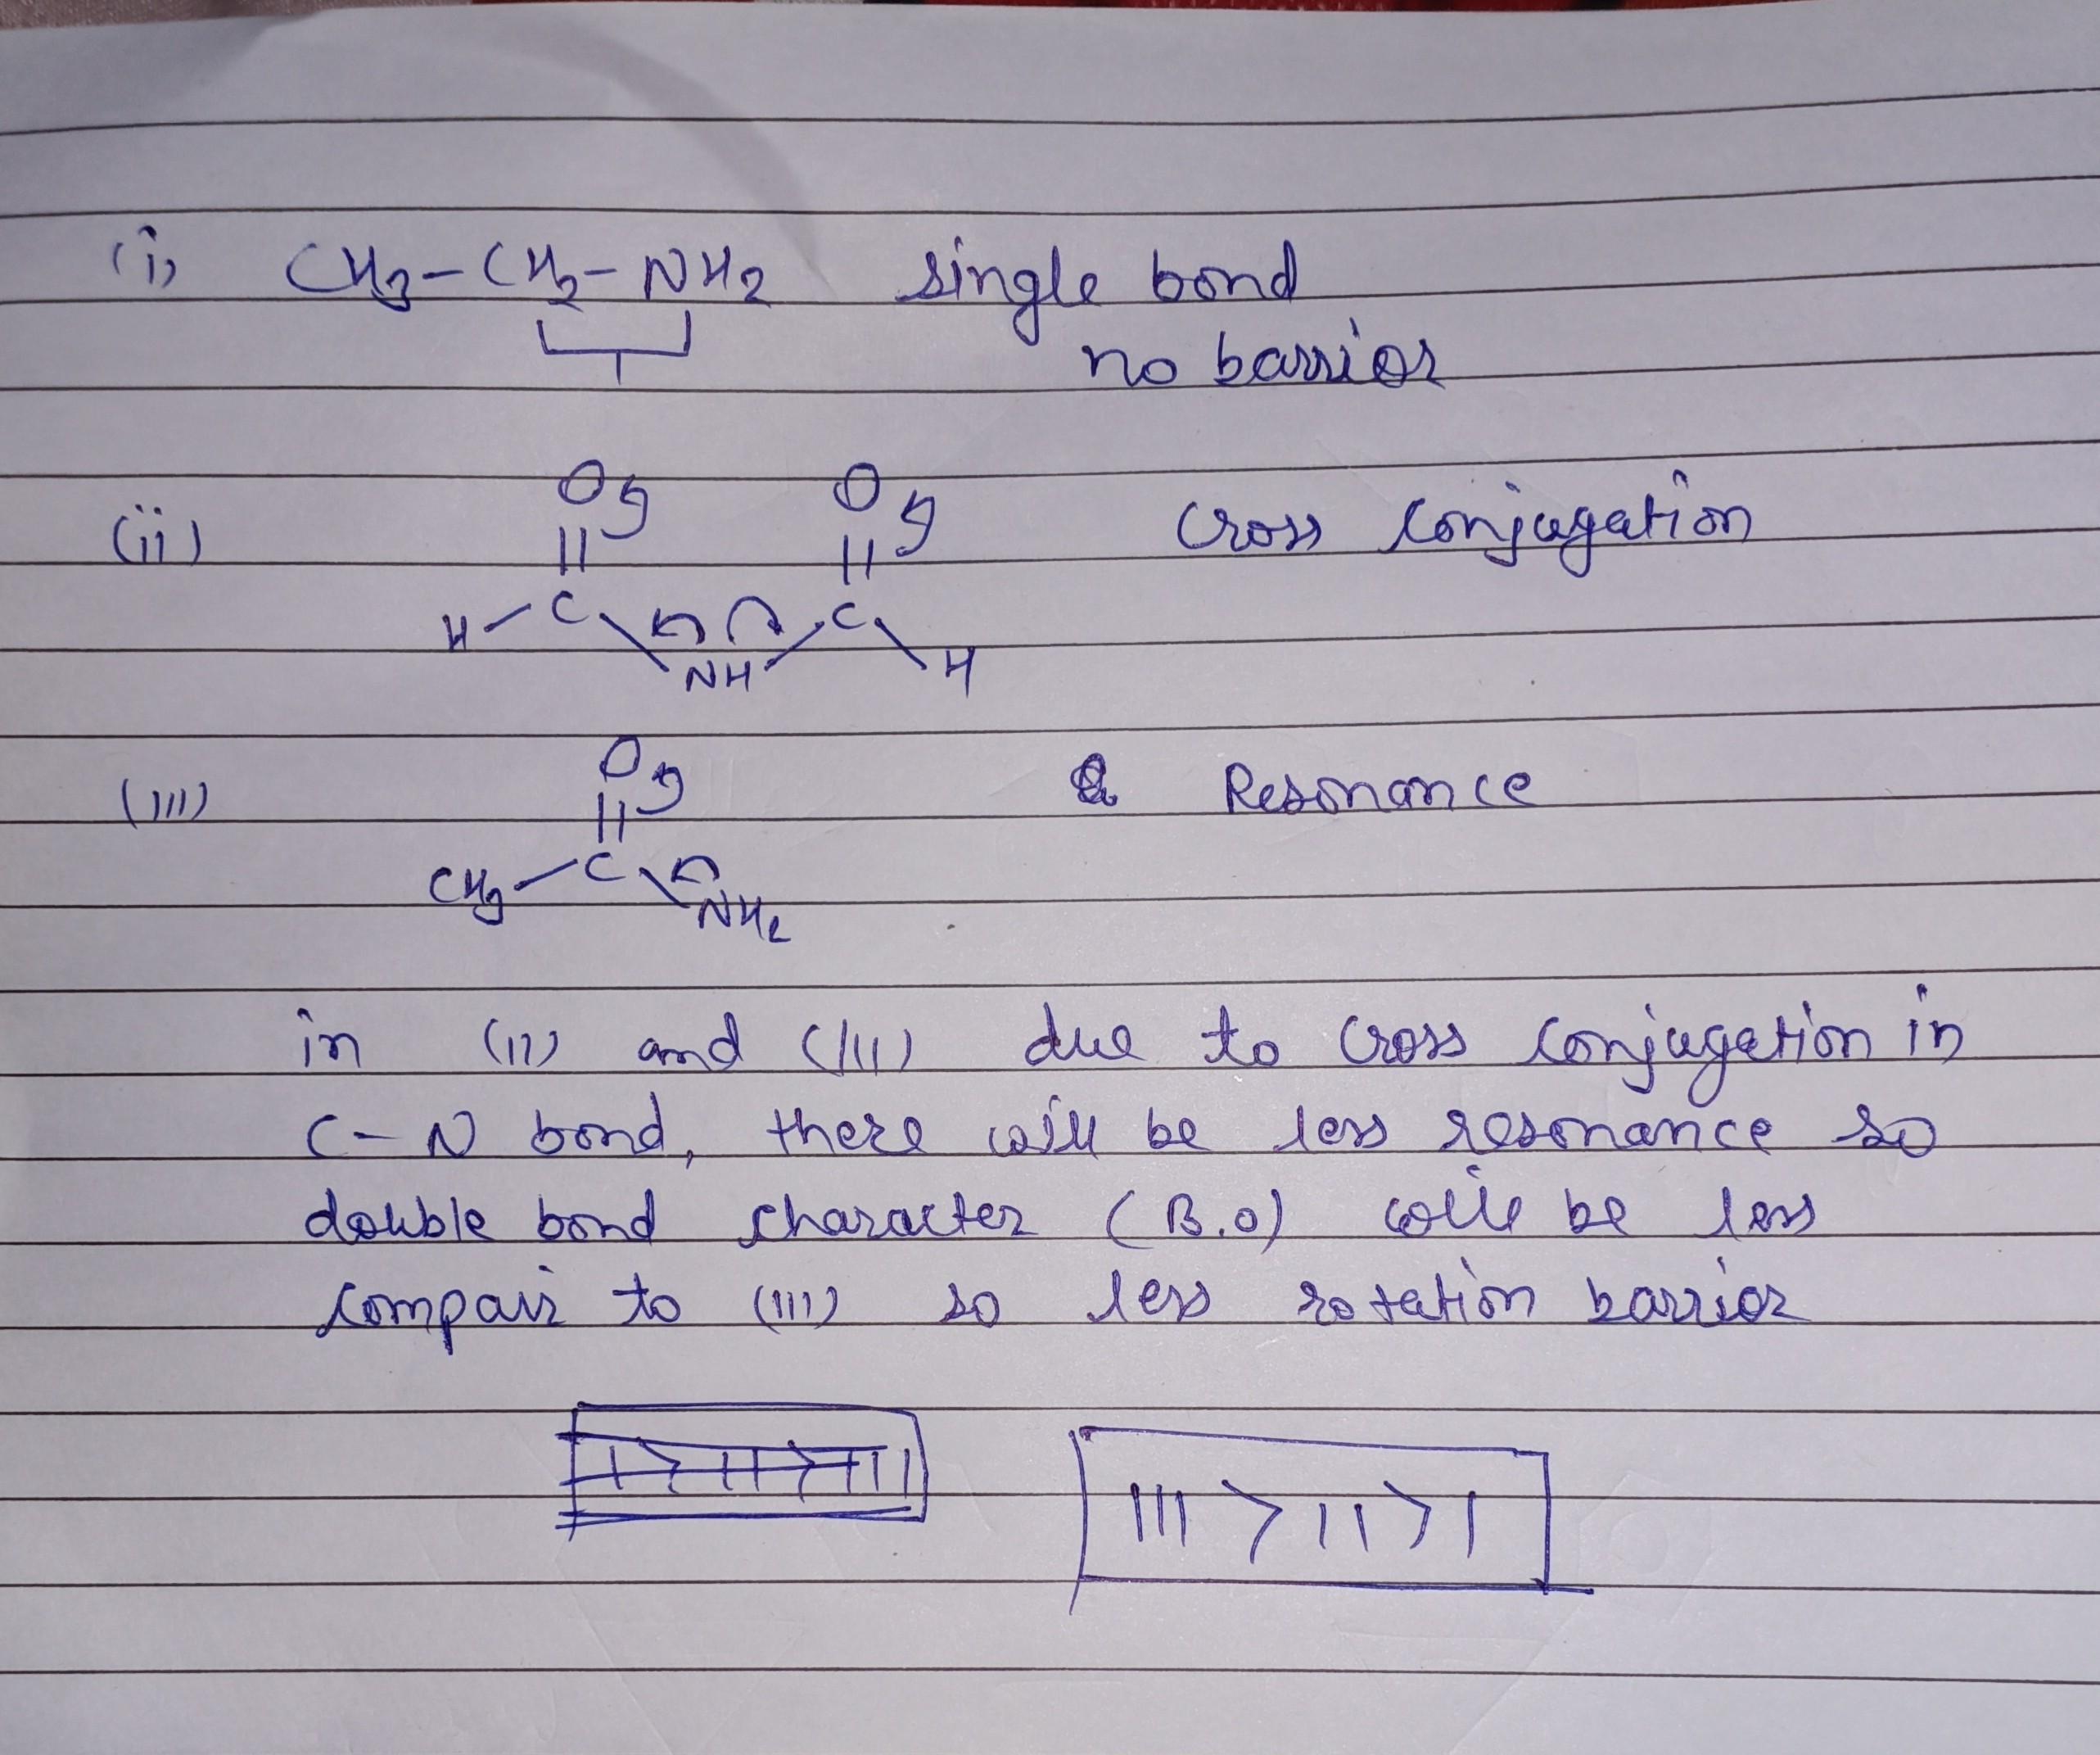 (i) CH3-CH2-NH2 single bond
no barrior
(ii) O O Cross Conjugation
|| ||
H-C C
NH H
(III) O & Resonance
||
CH3-C
NH2
in (II) and (III) due to Cross Conjugation in
C-N bond, there will be less resonance so
double bond character (B.O) will be less
compair to (III) so less rotation barrior
I > II > III III > II > I